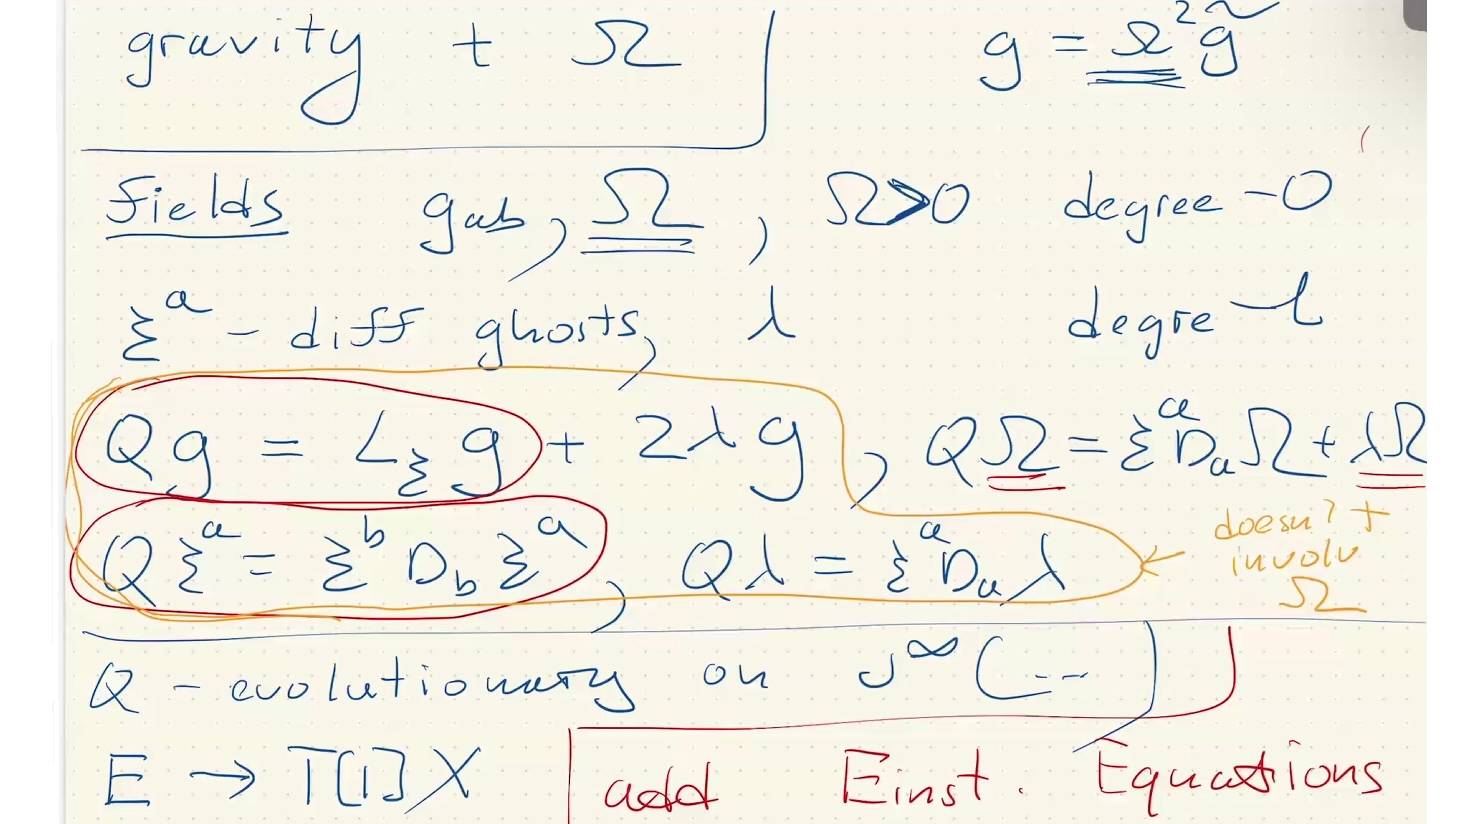 gravity + Ω g = Ω² g̃
Fields g_ab, Ω, Ω>0 degree-0
ξ^a - diff ghosts, λ degre-1
Qg = L_ξ g + 2λg, QΩ = ξ^a D_a Ω + λΩ
Qξ^a = ξ^b D_b ξ^a, Qλ = ξ^a D_a λ
doesn't
involv
Ω
Q - evolutionary on J^∞(...)
E → T[1]X
add Einst. Equations